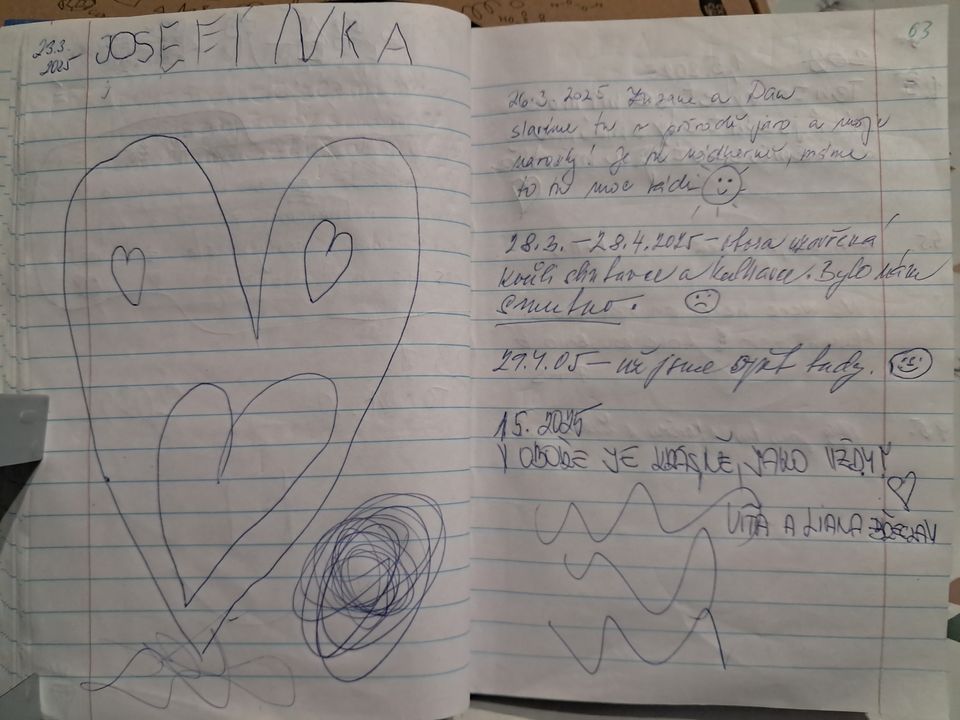 23.3.
2025
JOSEFÍNKA
63
26.3.2025 Zuzana a Dan
slavíme tu v přírodě jaro a moje
narozky! Je tu nádherně, máme
to tu moc rádi
28.3. – 28.4.2025 – obora uzavřená
kvůli slintavce a kulhavce. Bylo nám
smutno.
29.4.05 – už jsme opět tady.
1 5. 2025
V OBOŘE JE KRÁSNĚ, JAKO VŽDY!
VÍŤA A LIANA BŘECLAV